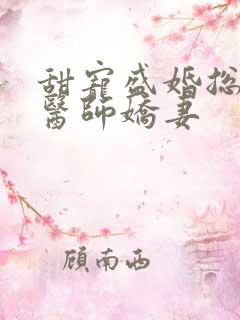 甜寵盛婚總
醫師嬌妻
顧南西